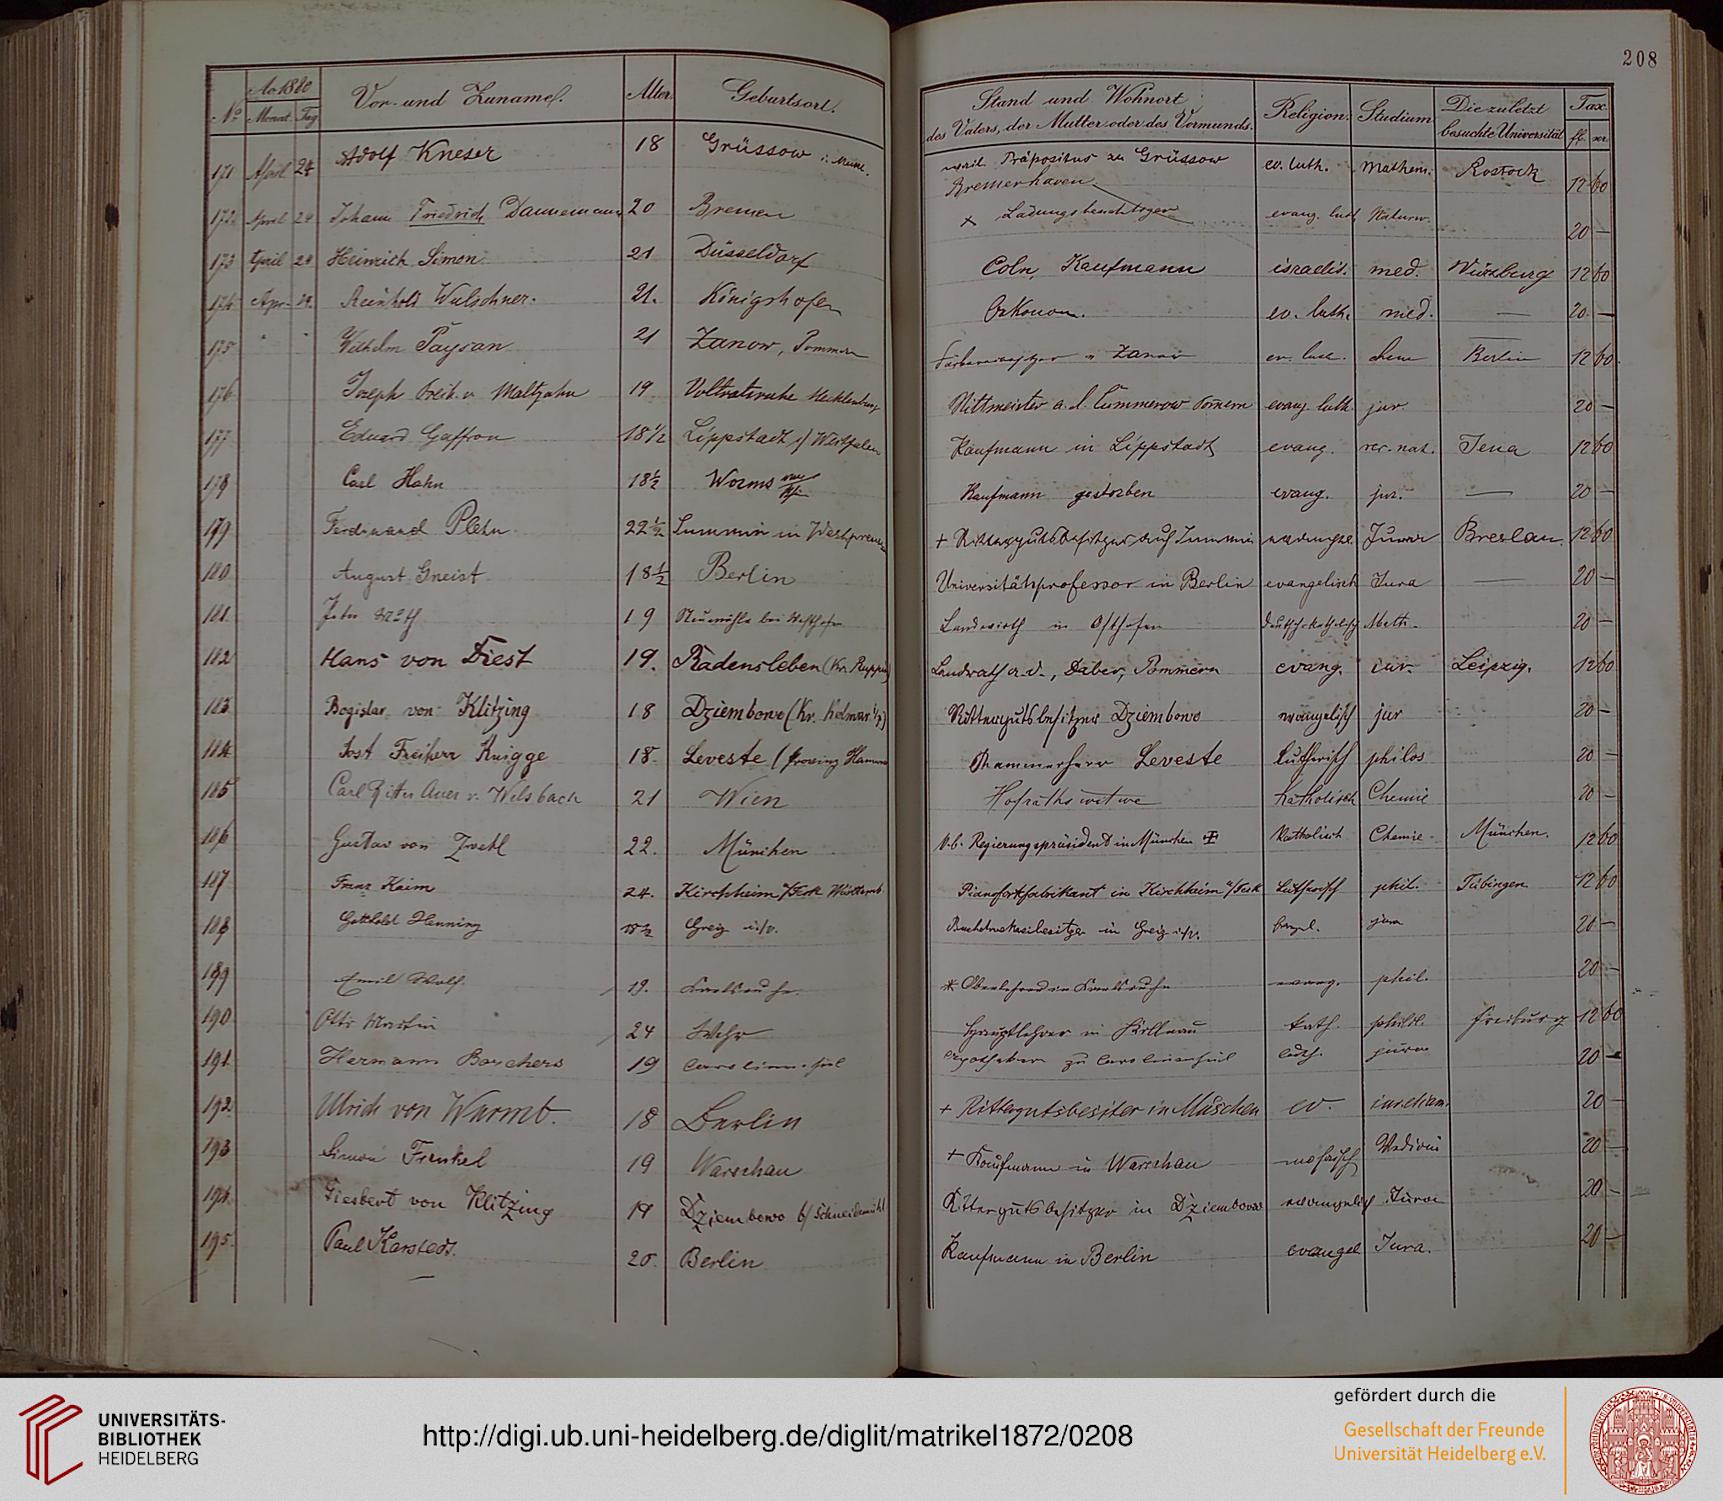 208
No. Ao. 1880 Monat Tag Vor- und Zuname. Alter Geburtsort. Stand und Wohnort des Vaters, der Mutter oder des Vormunds. Religion. Studium Die zuletzt besuchte Universität Tax fl. xr.
171 April 24 Adolf Kneser 18 Grüssow weil. Präpositus zu Grüssow ev. luth. Mathem. Rostock 12 60
172 April 24 Johann Friedrich Dannemann 20 Bremen Bremerhaven evang. luth Naturw. 20 —
173 April 24 Heinrich Simon 21 Düsseldorf Cöln, Kaufmann israelit. med. Würzburg 12 60
174 Apr. 24. Reinhold Wulschner. 21. Königshofen Oekonom. ev. luth. med. — 20. —
175 " " Wilhelm Paysan 21 Zanow, Pommern Zanow ev. luth. chem Berlin 12 60.
176 Joseph Freih. v. Maltzahn 19 Vollratsruhe Mecklenburg Rittmeister a. d. Cummerow Pomern evang. luth. jur. 20 —
177 Eduard Gaffron 18 1/2 Lippstadt i/ Westfalen Kaufmann in Lippstadt evang. rer. nat. Jena 12 60
178 Carl Hahn 18 1/2 Worms Kaufmann gestorben evang. jur. — 20 —
179 Ferdinand Plehn 22 1/2 Lummin in Westpreussen + Rittergutsbesitzer auf Lummin evangel. Jura Breslau. 12 60
180 August Gneist 18 1/2 Berlin Universitätsprofessor in Berlin evangelisch Jura — 20 —
181. 19 Neumühle bei Westhofen Landwirth in Osthofen deutschkatholisch Math. 20 —
182 Hans von Diest 19. Radensleben (Kr. Ruppin) Landrath a. D., Daber, Pommern evang. iur. Leipzig. 12 60
183 Bogislav von Klitzing 18 Dziembowo (Kr. Kolmar i/P) Rittergutsbesitzer Dziembowo evangelisch jur 20 —
184 Jost Freiherr Knigge 18 Leveste (Provinz Hannover Kammerherr Leveste lutherisch philos 20 —
185 Carl Ritter Auer v. Welsbach 21 Wien Hofraths witwe katholisch Chemie 20 —
186 Gustav von Zwehl 22. München k. b. Regierungspräsident in München + Katholisch Chemie München. 12 60
187 Franz Kaim 24. Kirchheim u/Teck Württemb. Pianofortefabrikant in Kirchheim u/Teck lutherisch phil. Tübingen 12 60
188 Gotthold Henning 18 1/2 Greiz i/V. Buchdruckereibesitzer in Greiz i/V. evngl. jura 20 —
189 Emil Wolf. 19. Karlsruhe * Oberlehrer in Karlsruhe evang. phil. 20 —
190 Otto Martin 24 Wehr Hauptlehrer in Kollnau kath. philol. Freiburg 12 60
191. Hermann Borchers 19 Carolinensiel Apotheker zu Carolinensiel luth. jura 20 —
192. Ulrich von Warmb. 18 Berlin + Rittergutsbesitzer in Mäschen ev. iur. et cam. 20 —
193 Simon Frenkel 19 Warschau + Kaufmann in Warschau mosaisch Medicin 20 —
194. Giesbert von Klitzing 19 Dziembowo b/ Schneidemühl Rittergutsbesitzer in Dziembowo evangelisch Jura 20 —
195. Paul Karstedt. 20. Berlin Kaufmann in Berlin evangel Jura. 20 —
UNIVERSITÄTS-
BIBLIOTHEK
HEIDELBERG
http://digi.ub.uni-heidelberg.de/diglit/matrikel1872/0208
gefördert durch die
Gesellschaft der Freunde
Universität Heidelberg e.V.